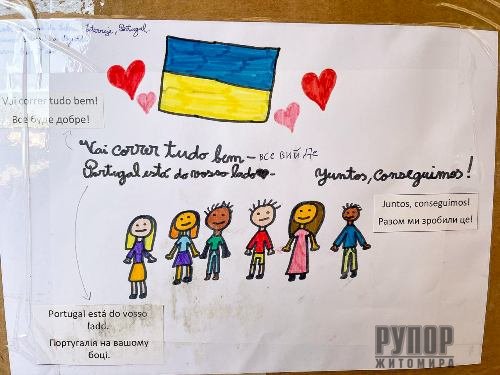 Estarreja, Portugal.
Vai correr tudo bem!
Все буде добре!
Vai correr tudo bem - все вий де
Portugal está do vosso lado -
Yuntos, conseguimos!
Juntos, conseguimos!
Разом ми зробили це!
Portugal está do vosso
lado.
Португалія на вашому
боці.
РУПОР
ЖИТОМИРА